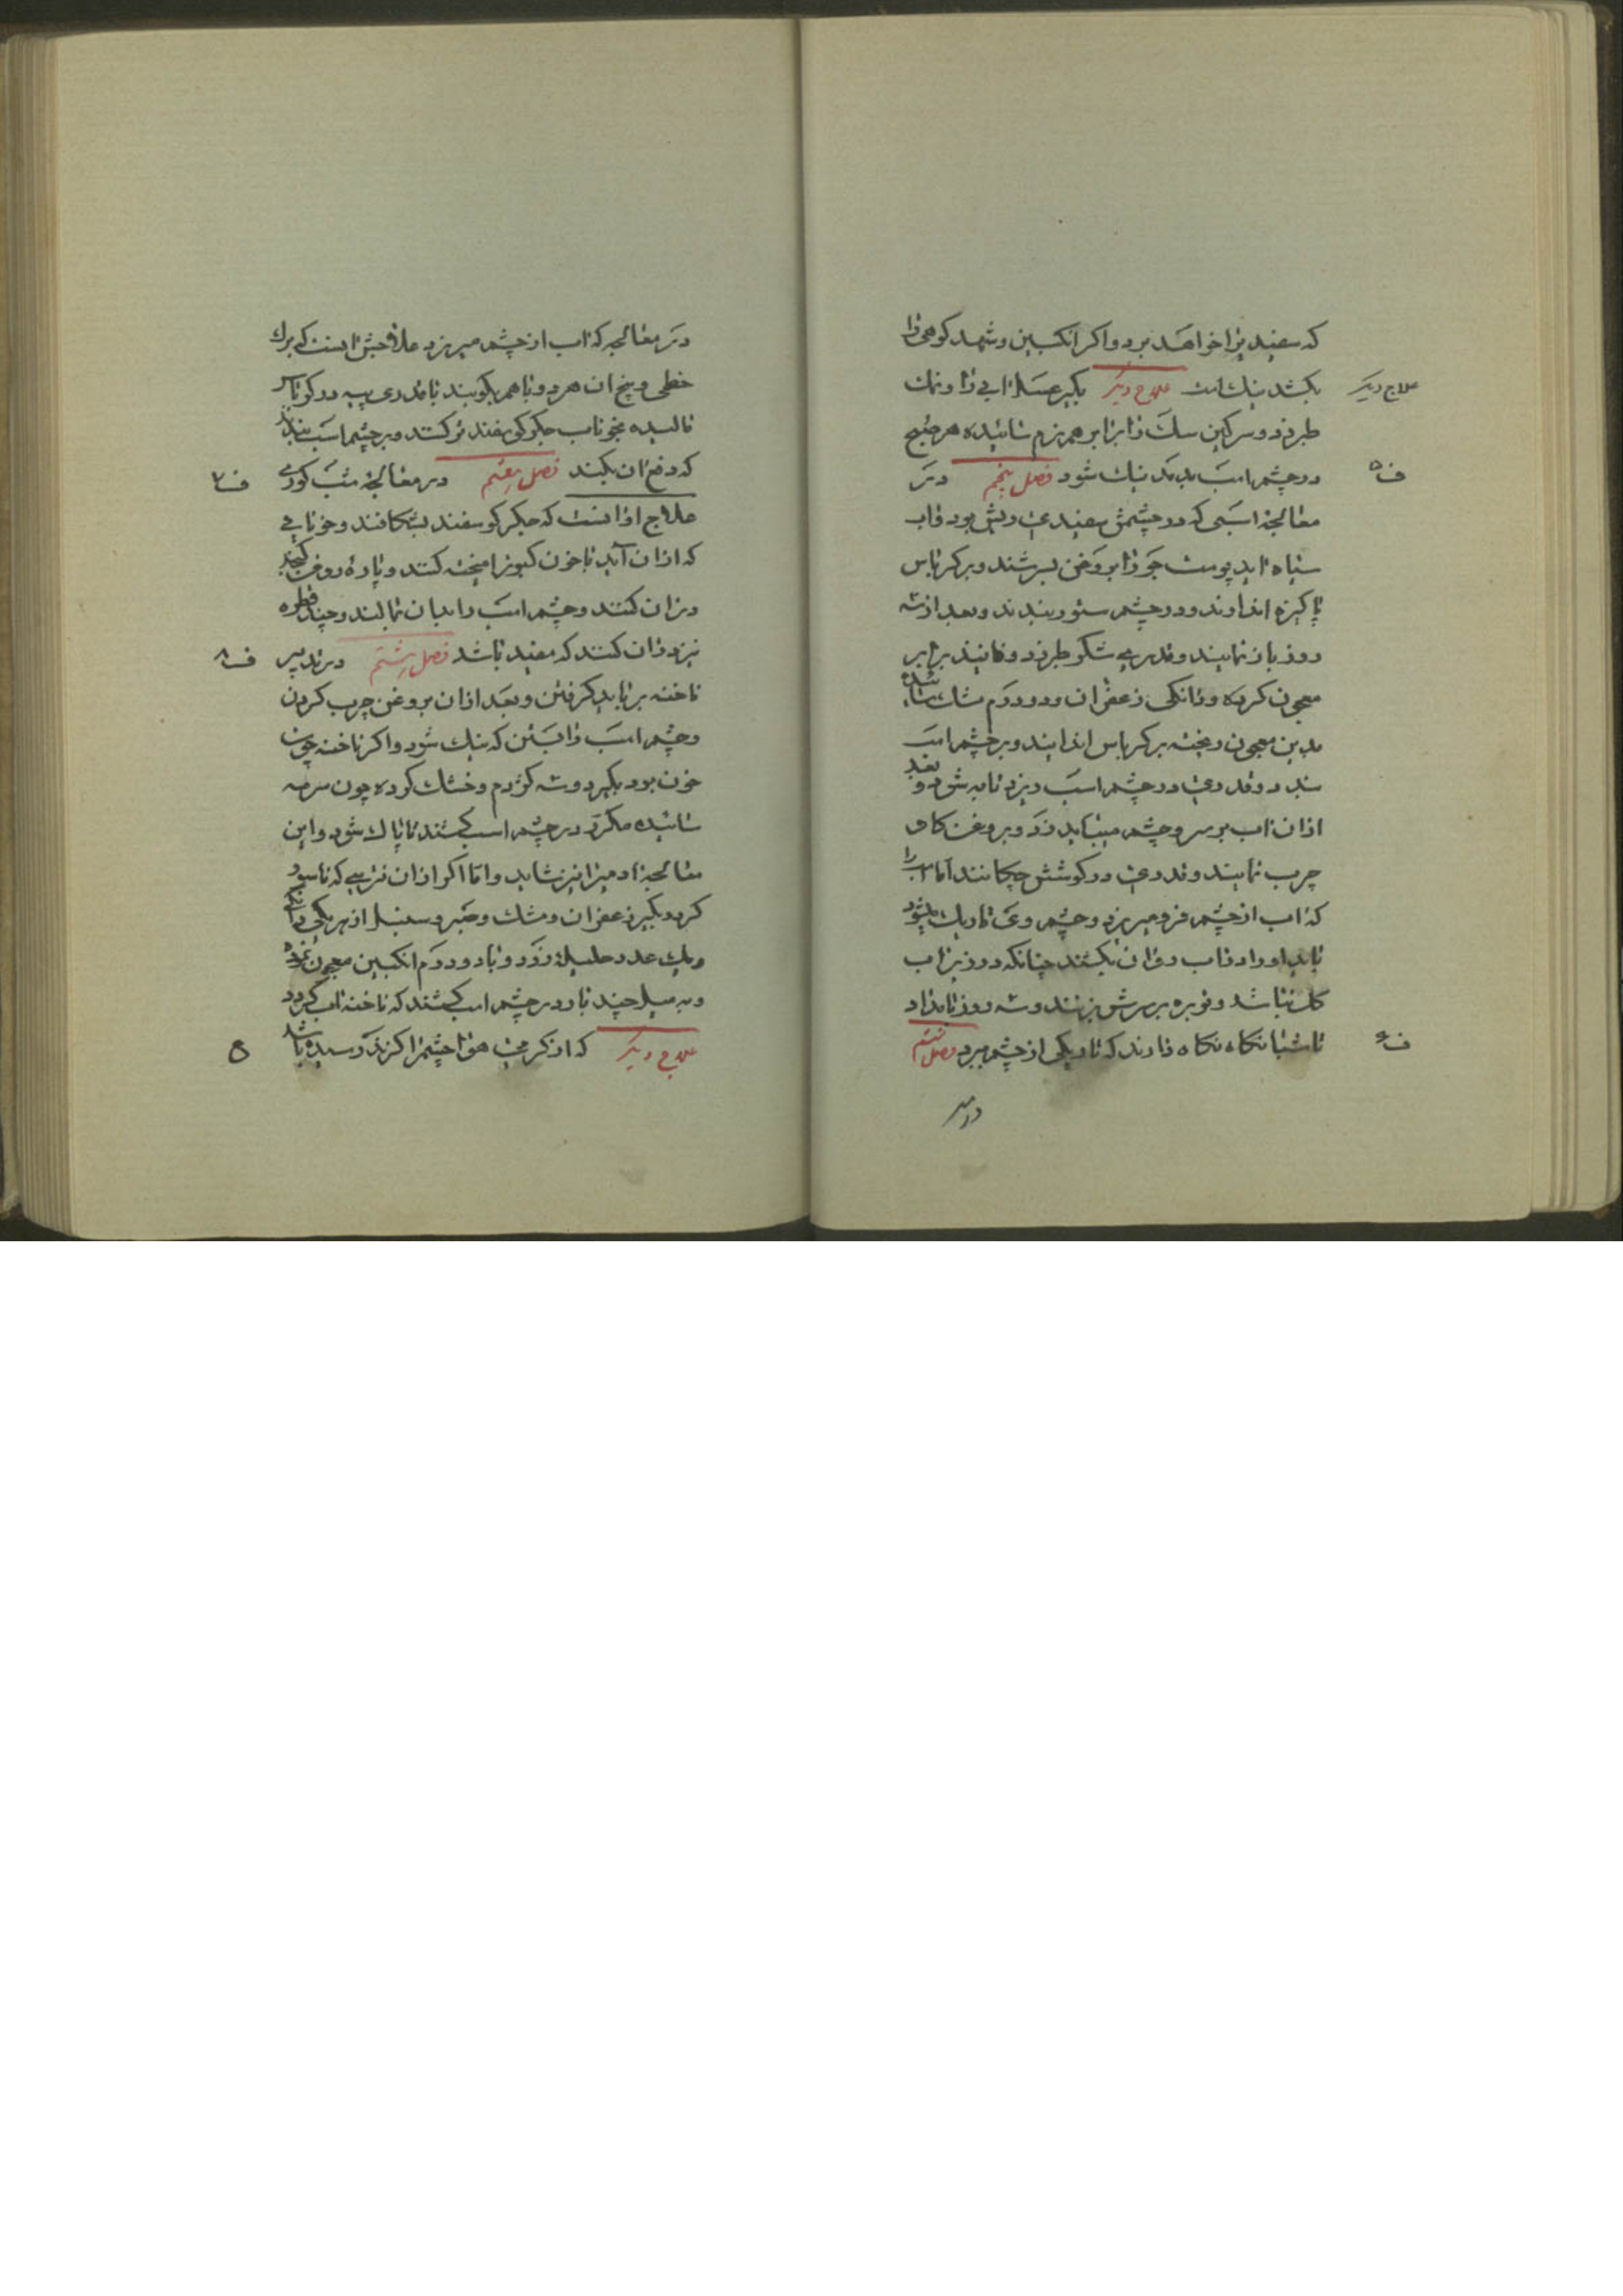 که سفیدیرا خواهد برد واکر انکبین وشهد کوهی را
علاج دیکر
بکشد نیک است علاج دیکر بکیر عسل ابی را ونمک
طبرزد وسرکین سک را برابر هم نرم سائیده هر صبح
ف۵
در چشم اسب بدمد نیک شود فصل پنجم در
معالجهٔ اسبی که در چشمش سفیدی وریش بود واب
سیاه اید پوست جو را بروغن بسرشند وبر کرباس
پاکیزه اندازند ودر چشم ستور بندند وبعد از سه
روز باز نمایند وقدری شکر طبرزد وفانید برابر
معجون کرده ودانکی زعفران ودو درم مشک سائیده
بدین معجون ریخته بر کرباس اندایند وبر چشم اسب
بندد وقدری در چشم اسب ریزد تا به شود وبعد
ازان اب بر سر وچشم میباید زد وبروغن کاو
چرب نمایند وقدری در کوشش چکانند اما اسبیرا
که اب از چشم فرو میریزد وچشم وی تاریک میشود
باید اورا در اب روان بکشند چنانکه در زیر اب
کل نباشد وتوبره بر سرش بزنند وسه روز بامداد
ف۶
تا شبانکاه نکاه دارند که تاریکی از چشم ببرد فصل ششم
در
در معالجه که اب از چشم میریزد علاجش انست که برک
خطمی وبیخ ان هر دو باهم بکوبند با قدری پیه در کوناب
مالیده بخوناب جکر کوسفند تر کنند وبر چشم اسب بندند
ف۷
که دفع ان بکند فصل هفتم در معالجهٔ شب کوری
علاج او انست که جکر کوسفند بشکافند وخونابی
که ازان آید با خون کبوتر امیخته کنند وپارهٔ روغن کنجد
دران کنند وچشم اسب را بدان بمالند وچند قطره
ف۸
نیز دران کنند که مفید باشد فصل هشتم در تدبیر
ناخنه برباید کرفتن وبعد ازان بروغن چرب کردن
وچشم اسب را بستن که نیک شود واکر ناخنه چون
خون بود بکیرد وسه کژدم وخشک کرده چون سرمه
سائیده مکرر در چشم اسب کشند تا پاک شود واین
معالجه ادمیرا نیز شاید واما اکر ازان نترسی که ناسور
کردد بکیر زعفران ومشک وعنبر وسنبل از هر یکی دانکی
ویک عدد هلیلهٔ زرد وبا دو درم انکبین معجون نموده
وبه میل چند بار در چشم اسب کشند که ناخنه اب کردد
علاج دیکر که از کرمی هوا چشم را کزند رسیده باشد